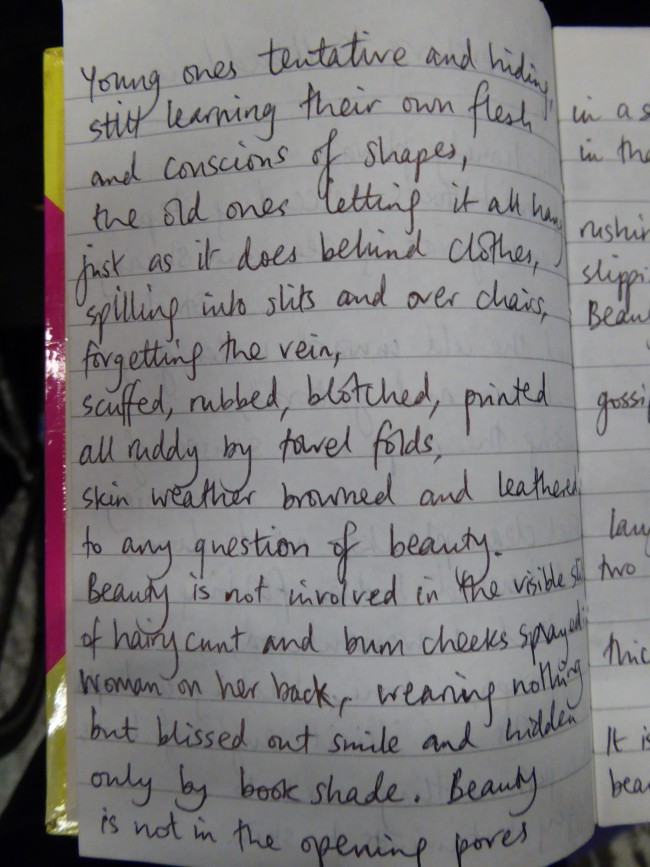 Young ones tentative and hiding,
still learning their own flesh
and conscious of shapes,
the old ones letting it all hang
just as it does behind clothes,
spilling into slits and over chairs,
forgetting the vein,
scuffed, rubbed, blotched, printed
all ruddy by towel folds,
skin weather browned and leathered
to any question of beauty.
Beauty is not involved in the visible
of hairy cunt and bum cheeks sprayed
woman on her back, wearing nothing
but blissed out smile and hidden
only by book shade. Beauty
is not in the opening pores
in a s
in the
rushin
slippi
Beau
gossi
lau
two
thic
It is
bea